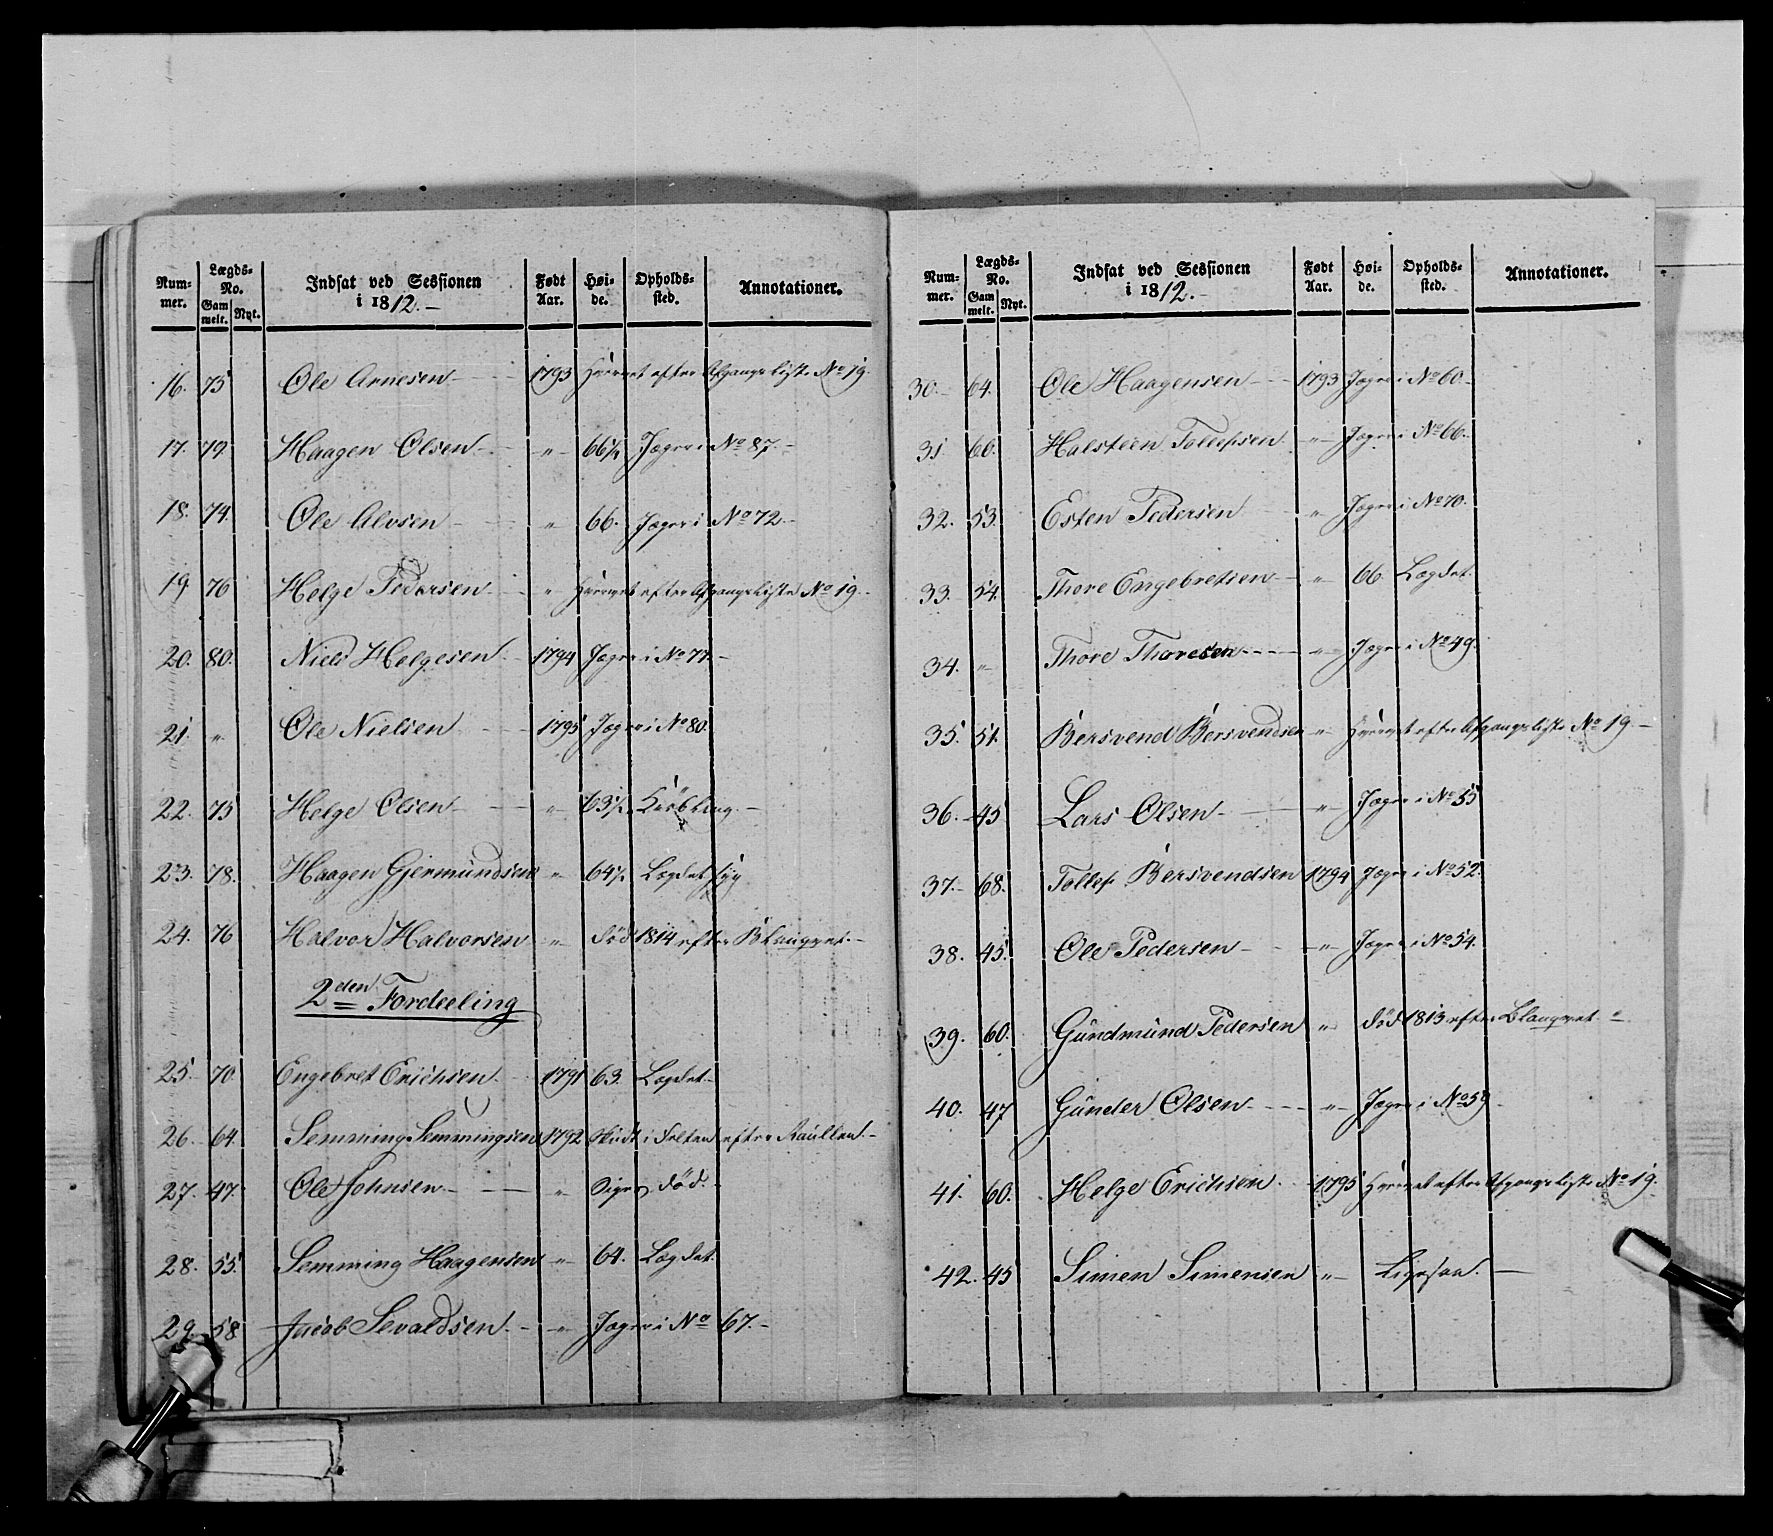 Num-mer. Lægds-No. Gam melt. Nyt. Indsat ved Sessionen i 1812.- Født Aar. Høi-de. Opholds-sted. Annotationer.
16. 75 Ole Arnesen 1793 Hvervet efter Afgangsliste No 19.
17. 79. Haagen Olsen " 66½ Jæger i No 87.-
18. 74. Ole Alvsen " 66. Jæger i No 72.-
19 76 Helge Pedersen " Hvervet efter Afgangsliste No 19.
20. 80. Niels Helgesen 1794 Jæger i No 77.-
21. " Ole Nielsen 1795 Jæger i No 80.
22. 75 Helge Olsen " 63½
23. 78. Haagen Gjermundsen " 64½ Lægdet syg
24. 76 Halvor Halvorsen " død 1814 efter
2den Fordeeling
25. 70. Engebret Erichsen. 1791 63. Lægdet.
26. 64. Semming Semmingsen 1792 efter Raullen.-
27. 47. Ole Johnsen " død.
28. 55. Semming Haagensen " 64. Lægdet.
29. 58 Jacob Sevaldsen.- " Jæger i No 67.-
Num-mer. Lægds-No. Gam melt. Nyt. Indsat ved Sessionen i 1812.- Født Aar. Høi-de. Opholds-sted. Annotationer.
30. 64. Ole Haagensen 1793 Jæger i No 60.
31 60. Halsteen Tollefsen " Jæger i No 66.
32. 53. Esten Pedersen " Jæger i No 70.
33. 54. Thore Engebretsen " 66. Lægdet.
34. " Thore Thoresen " Jæger i No 49.
35. 51. Bersvend Bersvendsen " Hvervet efter Afgangsliste No 19.-
36. 45 Lars Olsen " Jæger i No 55
37. 68. Tollef Bersvendsen 1794 Jæger i No 52.
38. 45. Ole Pedersen " Jæger i No 54.
39. 60. Gundmund Pedersen " død 1813 efter
40. 47 Gunder Olsen " Jæger i No 59
41. 60. Helge Erichsen 1795 Hvervet efter Afgangsliste No 19.
42. 45 Simen Simensen "